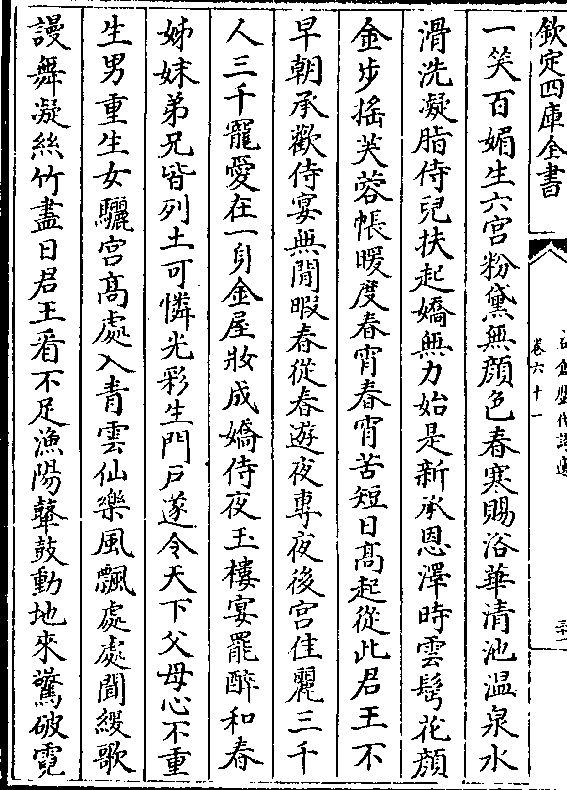 欽定四庫全書
卷六十一
一笑百媚生六宮粉黛無顔色春寒賜浴華清池温泉水
滑洗凝脂侍兒扶起嬌無力始是新承恩澤時雲髩花顔
金步揺芙蓉帳暖度春宵春宵苦短日髙起從此君王不
早朝承歡侍宴無閒暇春從春遊夜專夜後宫佳麗三千
人三千寵愛在一身金屋妝成嬌侍夜玉樓宴罷醉和春
姊妹弟兄皆列土可憐光彩生門戶遂令天下父母心不重
生男重生女驪宫髙處入青雲仙樂風飄處處聞緩歌
謾舞凝絲竹盡日君王看不足漁陽鼙鼓動地來驚破霓